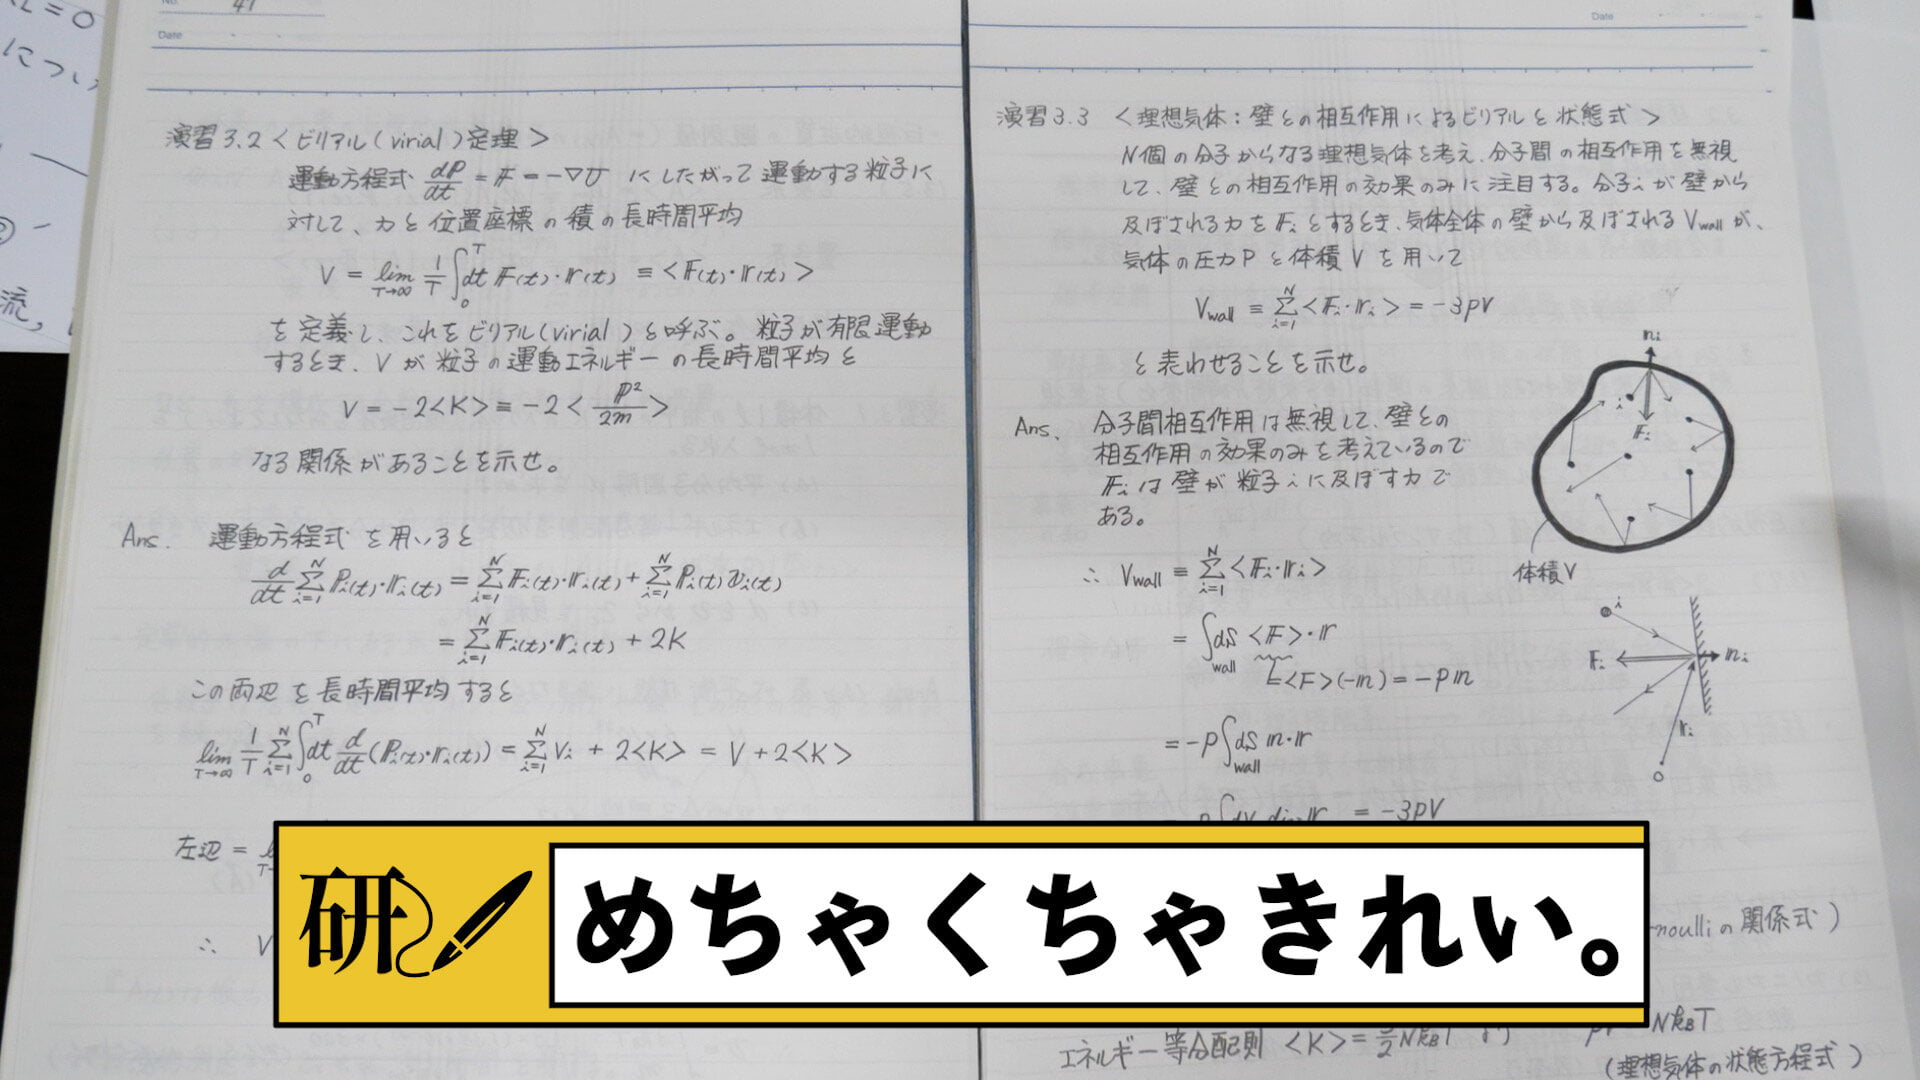 につい
流,
No. 41
Date
演習3.2 < ビリアル(virial)定理 >
運動方程式 dP/dt = F = -∇U にしたがって運動する粒子に
対して、力と位置座標の積の長時間平均
V = lim T→∞ 1/T ∫₀ᵀ dt F(t)・r(t) ≡ <F(t)・r(t)>
を定義し、これをビリアル(virial)と呼ぶ。粒子が有限運動
するとき、Vが粒子の運動エネルギーの長時間平均と
V = -2<K> ≡ -2< P²/2m >
なる関係があることを示せ。
Ans. 運動方程式を用いると
d/dt Σ_{i=1}^N Pi(t)・ri(t) = Σ_{i=1}^N Fi(t)・ri(t) + Σ_{i=1}^N Pi(t)vi(t)
= Σ_{i=1}^N Fi(t)・ri(t) + 2K
この両辺を長時間平均すると
lim T→∞ 1/T Σ_{i=1}^N ∫₀ᵀ dt d/dt (Pi(t)・ri(t)) = Σ_{i=1}^N Vi + 2<K> = V + 2<K>
左辺 =
∴ V
Date
演習3.3 <理想気体：壁との相互作用によるビリアルと状態式>
N個の分子からなる理想気体を考え、分子間の相互作用を無視
して、壁との相互作用の効果のみに注目する。分子iが壁から
及ぼされる力をFiとするとき、気体全体の壁から及ぼされるVwallが、
気体の圧力Pと体積Vを用いて
Vwall ≡ Σ_{i=1}^N <Fi・ri> = -3pV
と表わせることを示せ。
Ans. 分子間相互作用は無視して、壁との
相互作用の効果のみを考えているので
Fiは壁が粒子iに及ぼす力で
ある。
∴ Vwall ≡ Σ_{i=1}^N <Fi・ri>
= ∫wall dS <F>・r
<F>(-n) = -pn
= -p∫wall dS n・r
= -3pV
ni
i
Fi
体積V
i
Fi
ni
ri
O
noulliの関係式)
エネルギー等分配則 <K> = 3/2 NkBT より
NkBT
(理想気体の状態方程式)
研
めちゃくちゃきれい。